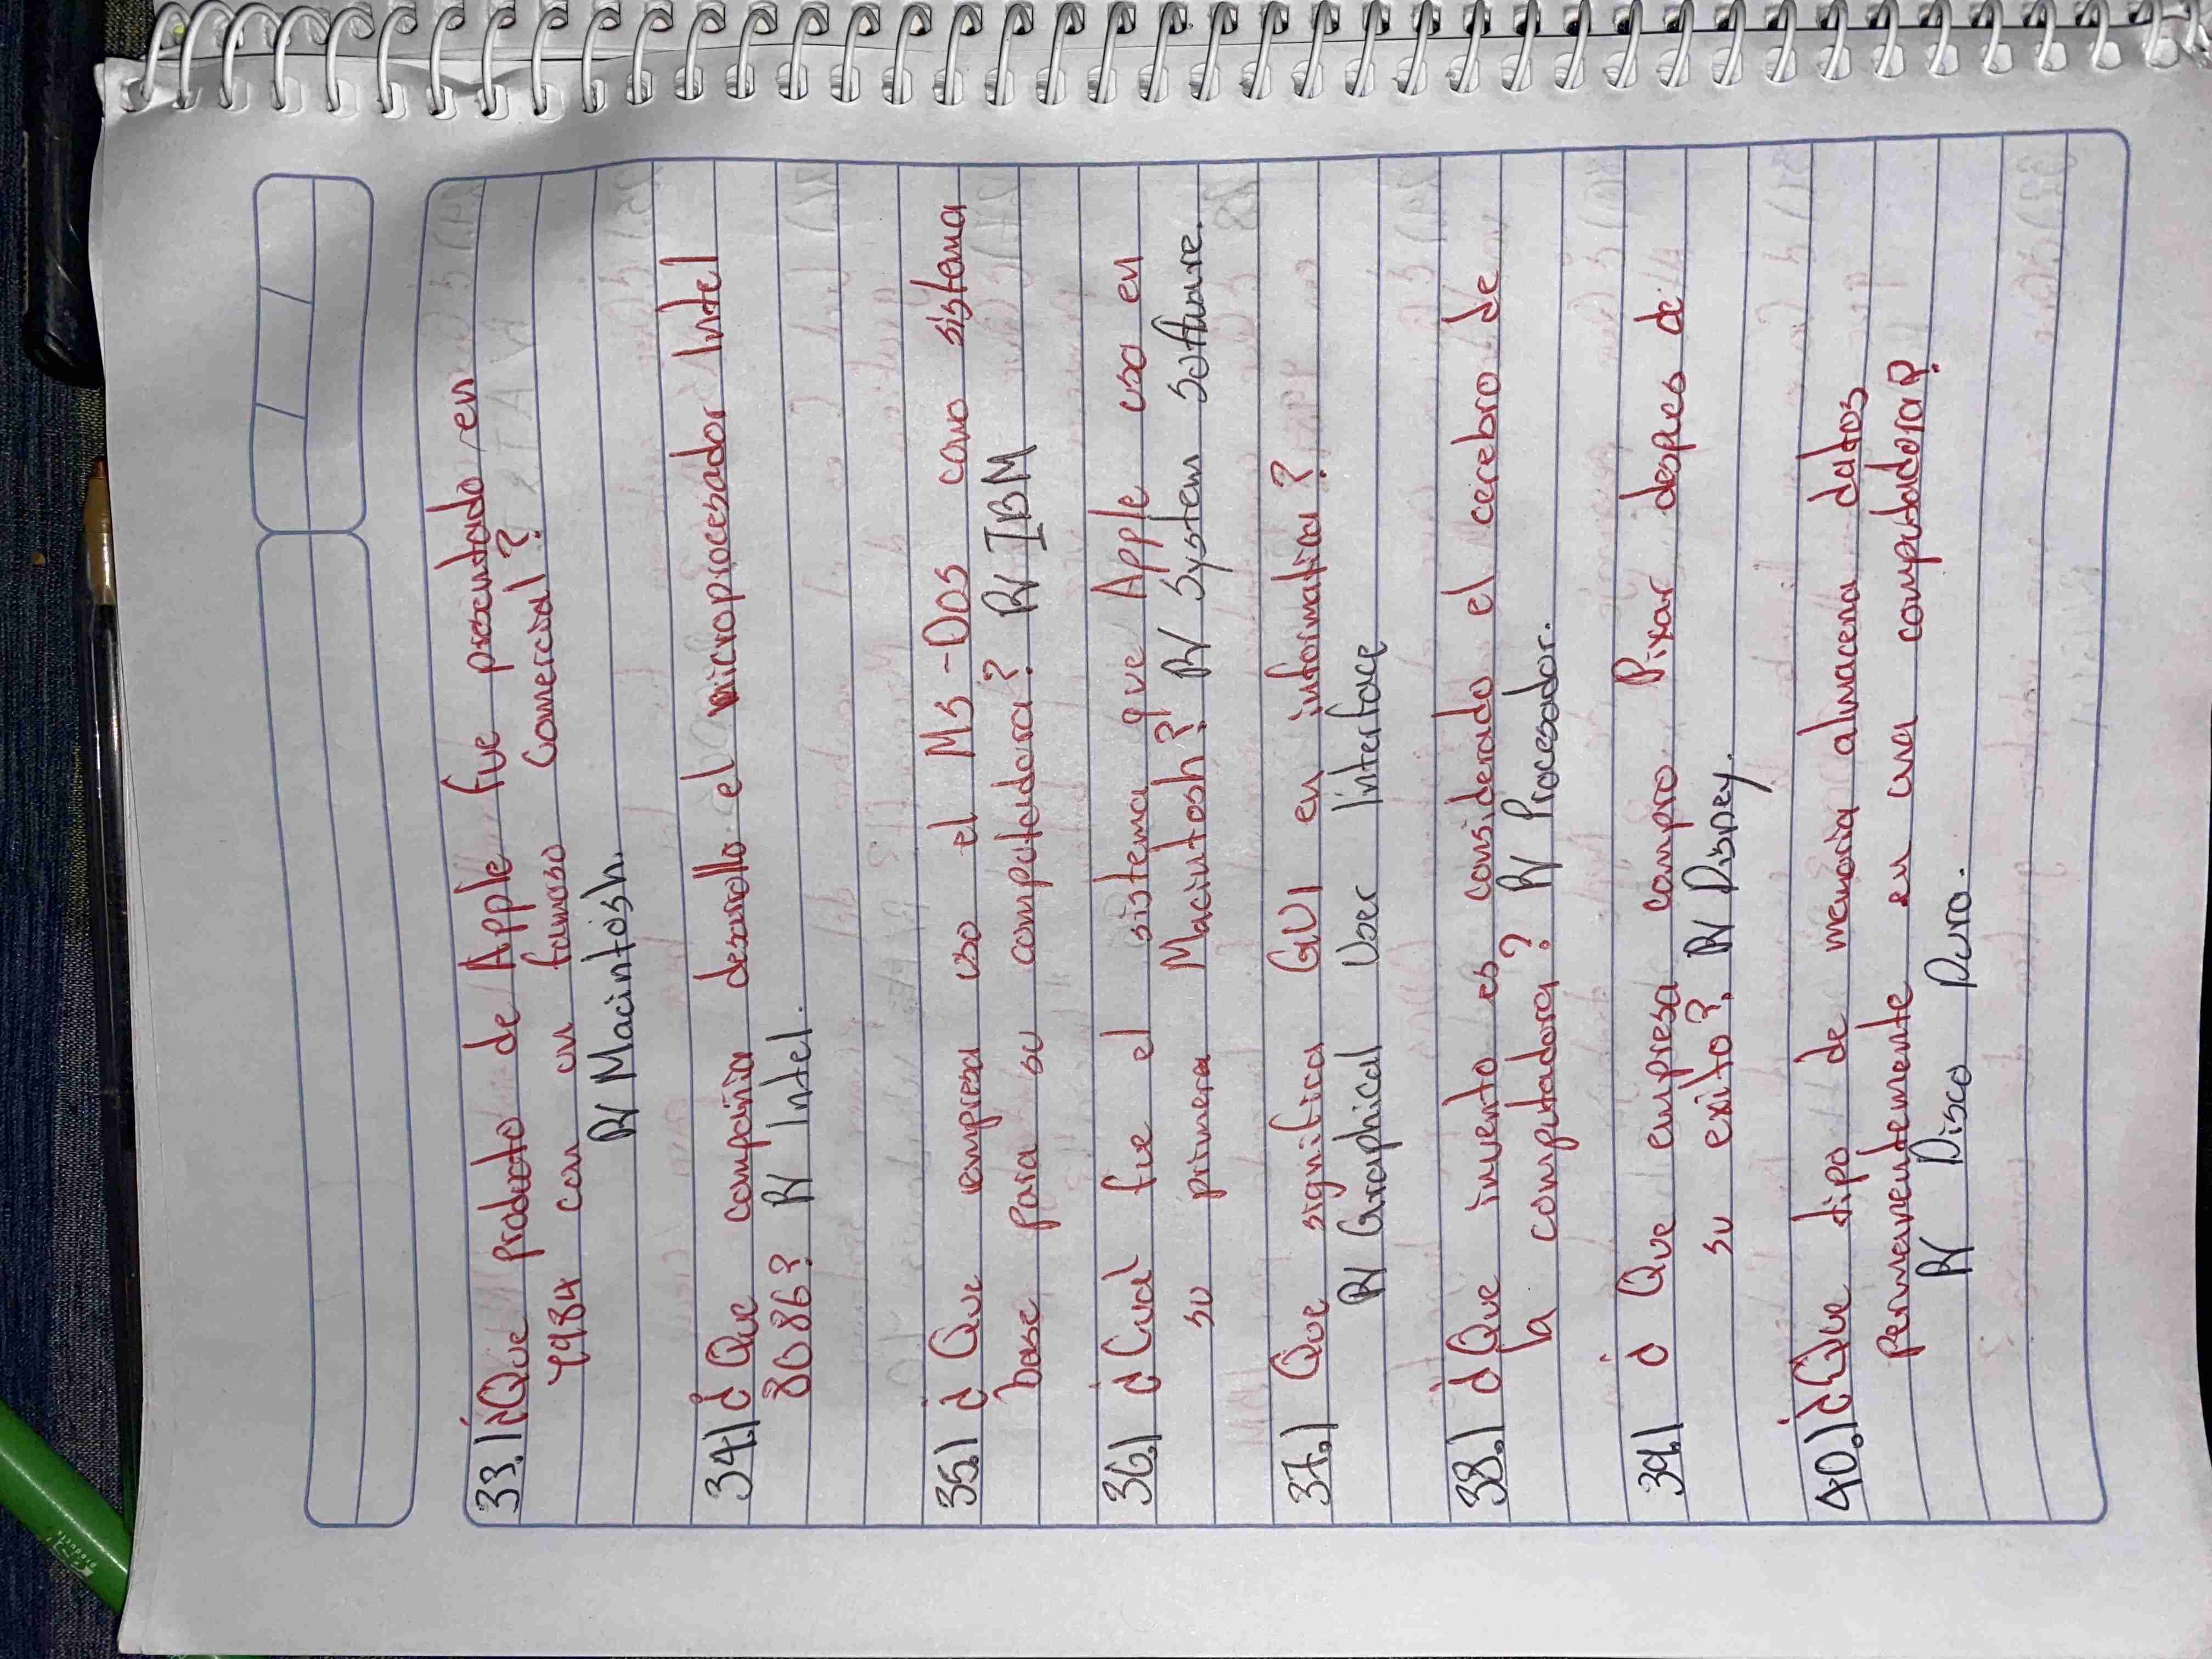 33.) ¿Que producto de Apple fue presentado en
1984 con un famoso comercial?
R/ Macintosh.
34.) ¿Que compañia desarrollo el microprocesador Intel
8086? R/ Intel.
35.) ¿Que empresa uso el MS-DOS como sistema
base para su computadora? R/ IBM
36.) ¿Cual fue el sistema que Apple uso en
su primera Macintosh? R/ System Software.
37.) Que significa GUI en informatica?
R/ Graphical User Interface
38.) ¿Que invento es considerado el cerebro de
la computadora? R/ Procesador.
39.) ¿Que empresa compro Pixar despues de
su exito?. R/ Disney.
40.) ¿Que tipo de memoria almacena datos
permanentemente en una computadora?
R/ Disco Duro.